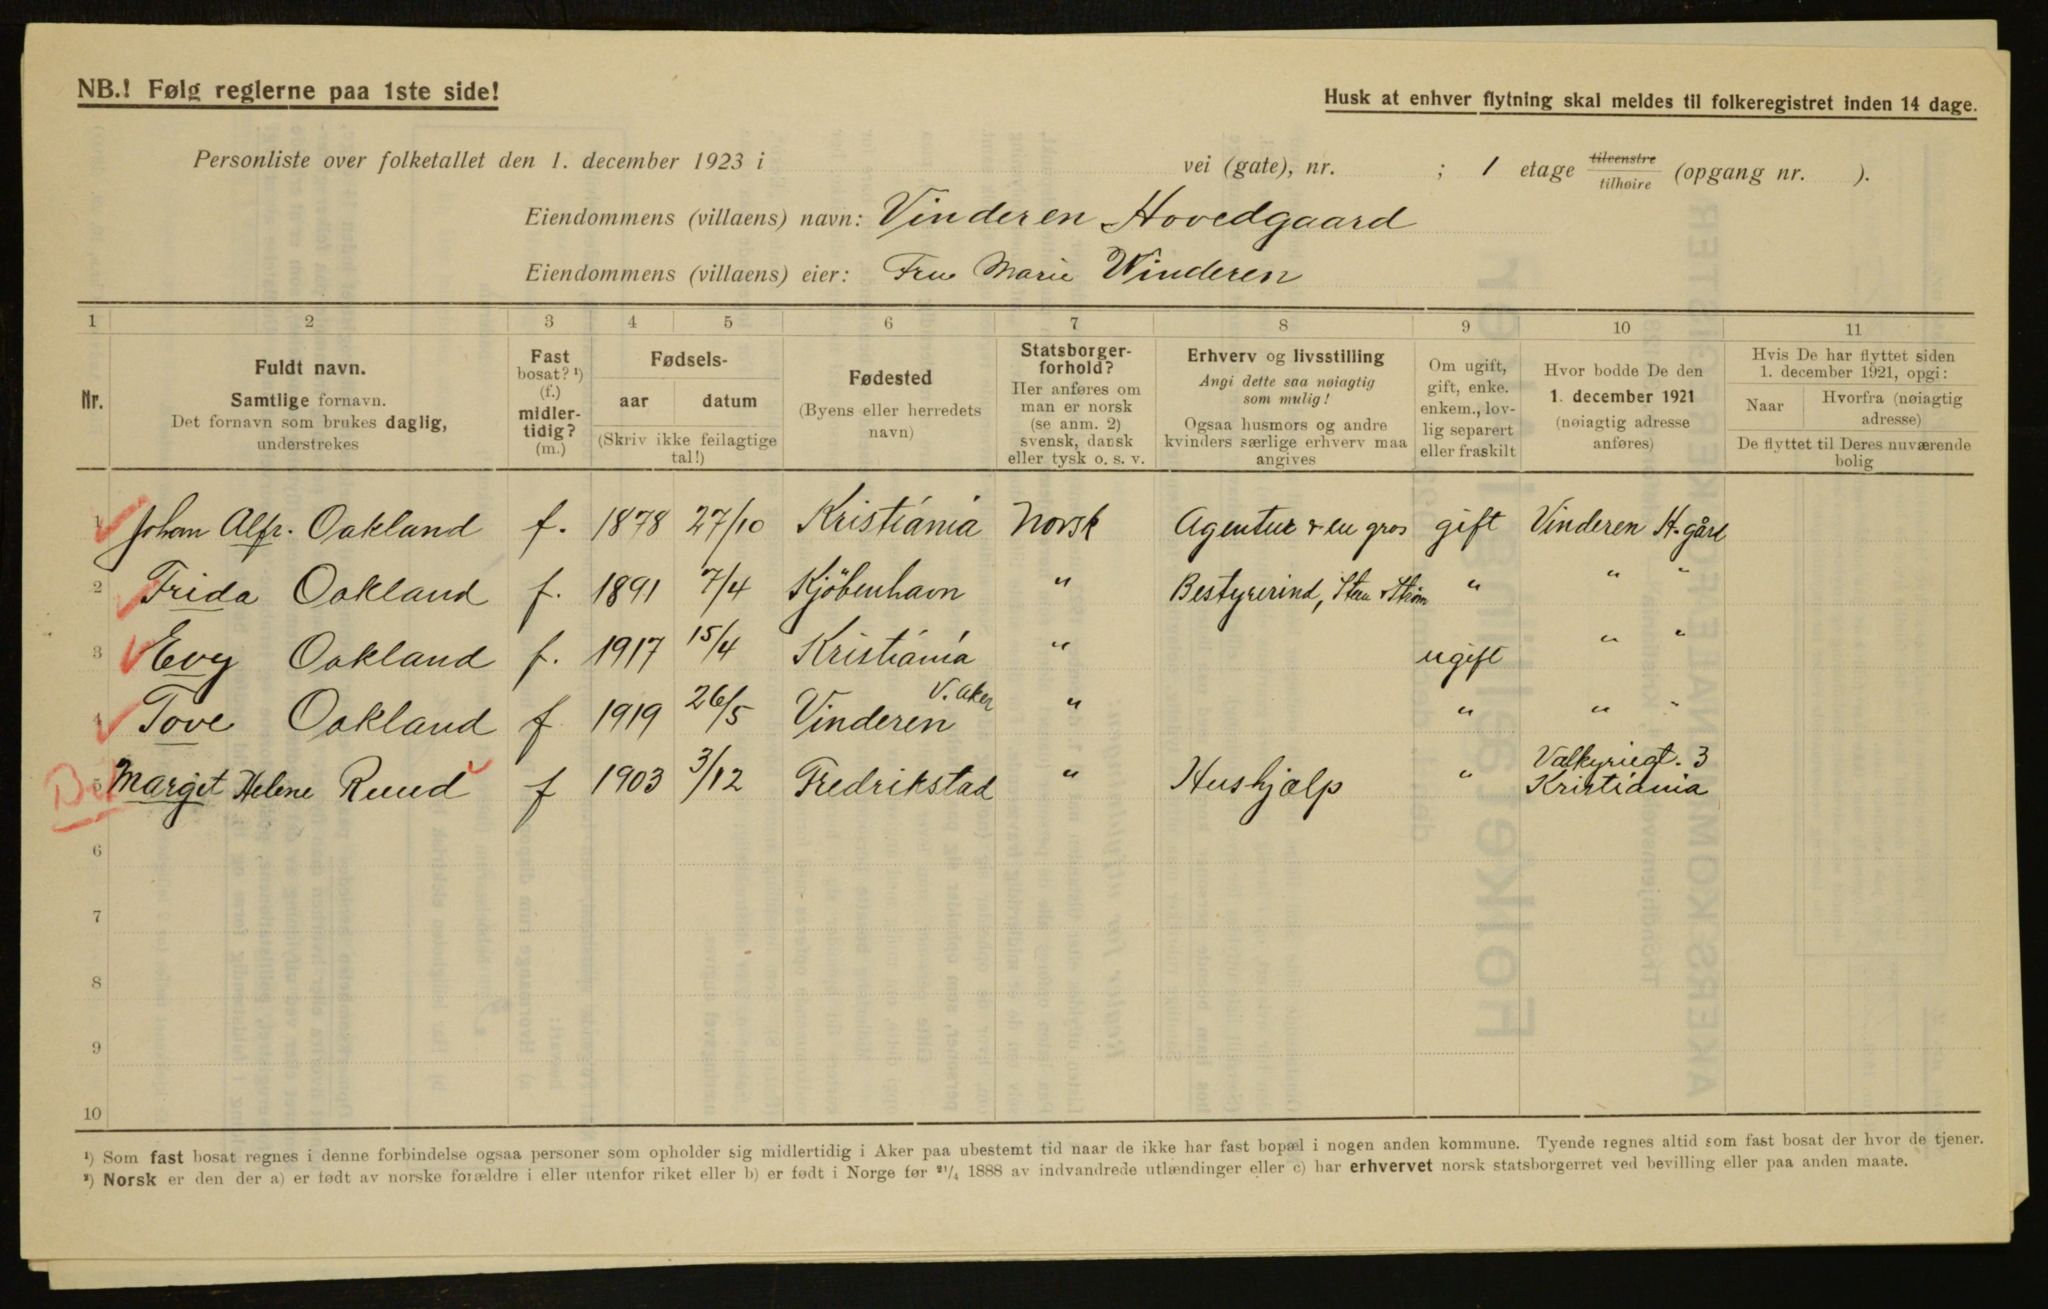 NB.! Følg reglerne paa 1ste side!
Husk at enhver flytning skal meldes til folkeregistret inden 14 dage.
Personliste over folketallet den 1. december 1923 i vei (gate), nr. ; 1 etage tilvenstre tilhøire (opgang nr. ).
Eiendommens (villaens) navn: Vinderen Hovedgaard
Eiendommens (villaens) eier: Fru Marie Winderen
1 2 3 4 5 6 7 8 9 10 11
Nr.
Fuldt navn.
Samtlige fornavn.
Det fornavn som brukes daglig,
understrekes
Fast
bosat? ¹)
(f.)
midler-
tidig?
(m.)
Fødsels-
aar datum
(Skriv ikke feilagtige
tal!)
Fødested
(Byens eller herredets
navn)
Statsborger-
forhold?
Her anføres om
man er norsk
(se anm. 2)
svensk, dansk
eller tysk o. s. v.
Erhverv og livsstilling
Angi dette saa nøiagtig
som mulig!
Ogsaa husmors og andre
kvinders særlige erhverv maa
angives
Om ugift,
gift, enke.
enkem., lov-
lig separert
eller fraskilt
Hvor bodde De den
1. december 1921
(nøiagtig adresse
anføres)
Hvis De har flyttet siden
1. december 1921, opgi:
Naar Hvorfra (nøiagtig
adresse)
De flyttet til Deres nuværende
bolig
1 Johan Alfr. Oakland f. 1878 27/10 Kristiánia Norsk Agentur & en gros gift Vinderen H.gård
2 Frida Oakland f. 1891 7/4 Kjöbenhavn " Bestyrerind, Steen & Strøm " " "
3 Evy Oakland f. 1917 15/4 Kristiánia " ugift " "
4 Tove Oakland f 1919 26/5 Vinderen V. Aker " " " "
5 Margit Helene Ruud f 1903 3/12 Fredrikstad " Hushjælp " Valkyriegt. 3
Kristiánia
6
7
8
9
10
¹) Som fast bosat regnes i denne forbindelse ogsaa personer som opholder sig midlertidig i Aker paa ubestemt tid naar de ikke har fast bopæl i nogen anden kommune. Tyende regnes altid som fast bosat der hvor de tjener.
²) Norsk er den der a) er født av norske forældre i eller utenfor riket eller b) er født i Norge før ²¹/₄ 1888 av indvandrede utlændinger eller c) har erhvervet norsk statsborgerret ved bevilling eller paa anden maate.